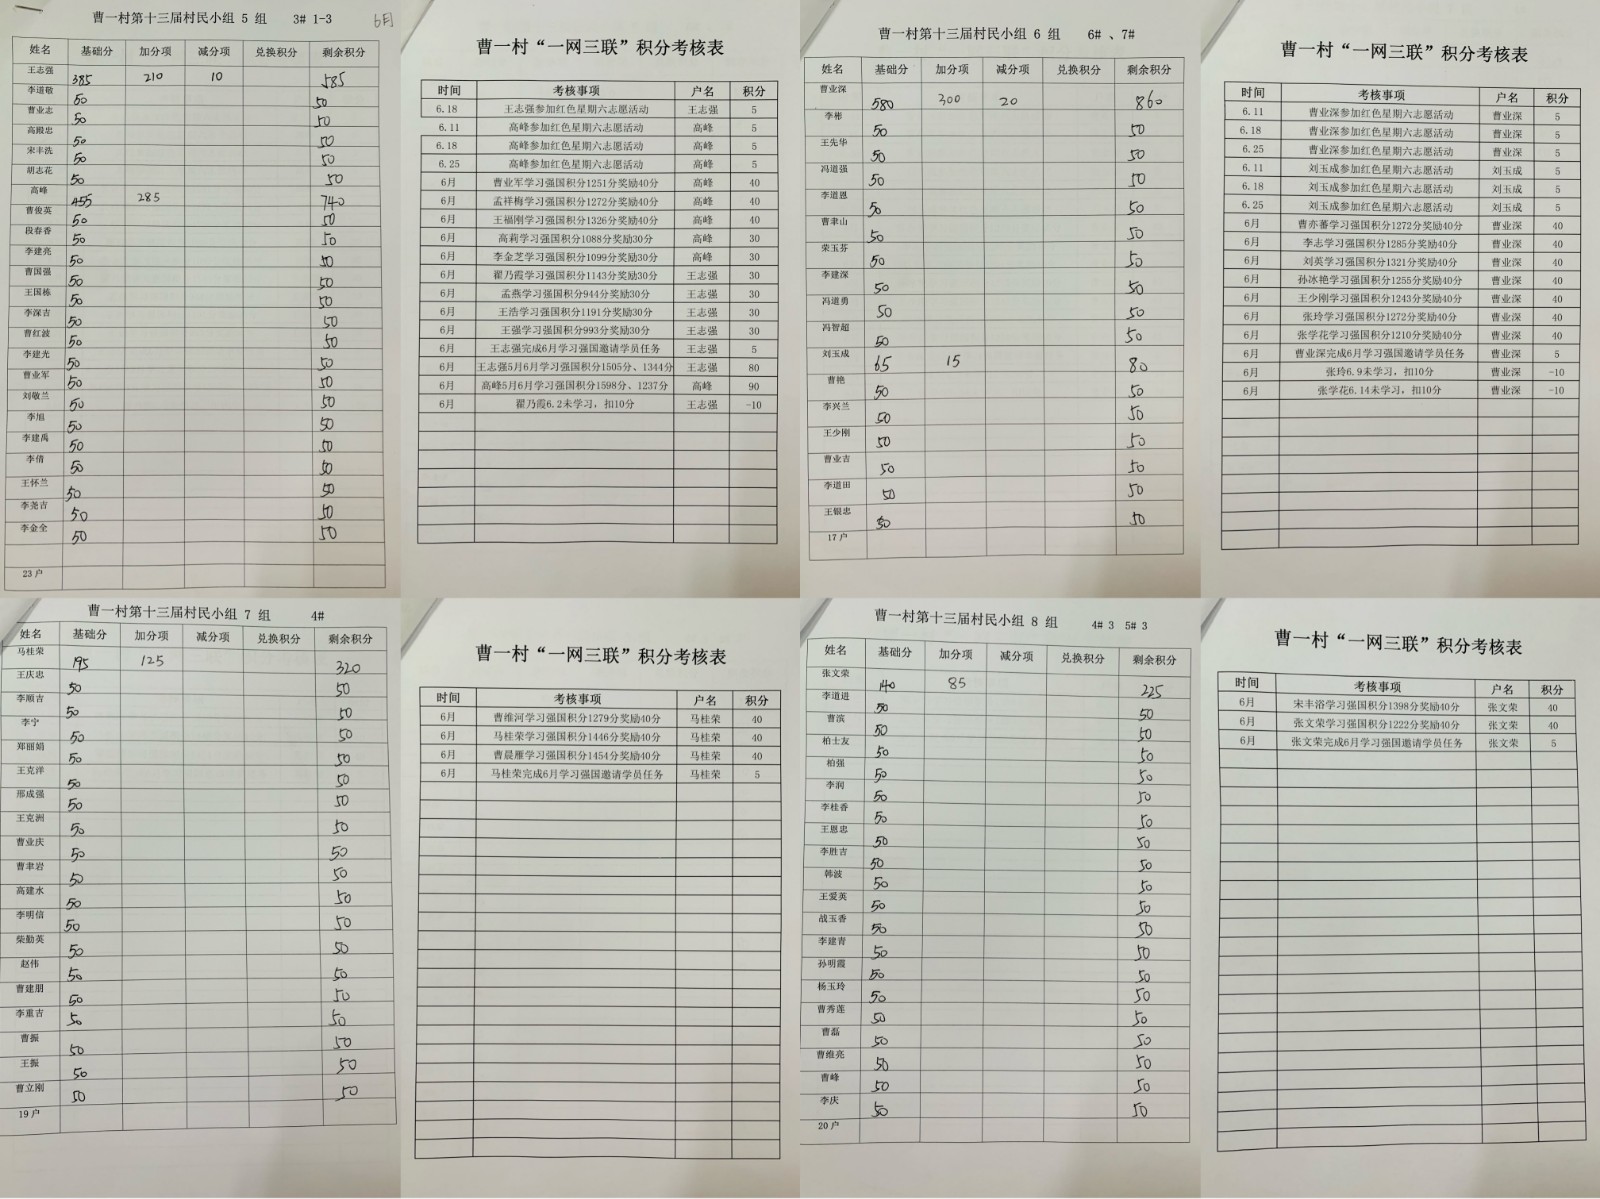 曹一村第十三届村民小组 5 组 3# 1-3 6月
姓名 基础分 加分项 减分项 兑换积分 剩余积分
王志强 385 210 10 585
李道敬 50 50
曹业志 50 50
高殿忠 50 50
宋丰洗 50 50
胡志花 50 50
高峰 455 285 740
曹俊英 50 50
段春香 50 50
李建亮 50 50
曹国强 50 50
王国栋 50 50
李深吉 50 50
曹红波 50 50
李建光 50 50
曹业军 50 50
刘敬兰 50 50
李旭 50 50
李建禹 50 50
李倩 50 50
王怀兰 50 50
李尧吉 50 50
李金全 50 50
23户
曹一村“一网三联”积分考核表
时间 考核事项 户名 积分
6.18 王志强参加红色星期六志愿活动 王志强 5
6.11 高峰参加红色星期六志愿活动 高峰 5
6.18 高峰参加红色星期六志愿活动 高峰 5
6.25 高峰参加红色星期六志愿活动 高峰 5
6月 曹业军学习强国积分1251分奖励40分 高峰 40
6月 孟祥梅学习强国积分1272分奖励40分 高峰 40
6月 王福刚学习强国积分1326分奖励40分 高峰 40
6月 高莉学习强国积分1088分奖励30分 高峰 30
6月 李金芝学习强国积分1099分奖励30分 高峰 30
6月 翟乃霞学习强国积分1143分奖励30分 王志强 30
6月 孟燕学习强国积分944分奖励30分 王志强 30
6月 王浩学习强国积分1191分奖励30分 王志强 30
6月 王强学习强国积分993分奖励30分 王志强 30
6月 王志强完成6月学习强国邀请学员任务 王志强 5
6月 王志强5月6月学习强国积分1505分、1344分 王志强 80
6月 高峰5月6月学习强国积分1598分、1237分 高峰 90
6月 翟乃霞6.2未学习，扣10分 王志强 -10
曹一村第十三届村民小组 6 组 6# 、7#
姓名 基础分 加分项 减分项 兑换积分 剩余积分
曹业深 580 300 20 860
李彬 50 50
王先华 50 50
冯道强 50 50
李道恩 50 50
曹聿山 50 50
荣玉芬 50 50
李建深 50 50
冯道勇 50 50
冯智超 50 50
刘玉成 65 15 80
曹艳 50 50
李兴兰 50 50
王少刚 50 50
曹业吉 50 50
李道田 50 50
王银忠 50 50
17户
曹一村“一网三联”积分考核表
时间 考核事项 户名 积分
6.11 曹业深参加红色星期六志愿活动 曹业深 5
6.18 曹业深参加红色星期六志愿活动 曹业深 5
6.25 曹业深参加红色星期六志愿活动 曹业深 5
6.11 刘玉成参加红色星期六志愿活动 刘玉成 5
6.18 刘玉成参加红色星期六志愿活动 刘玉成 5
6.25 刘玉成参加红色星期六志愿活动 刘玉成 5
6月 曹亦蕃学习强国积分1272分奖励40分 曹业深 40
6月 李志学习强国积分1285分奖励40分 曹业深 40
6月 刘英学习强国积分1321分奖励40分 曹业深 40
6月 孙冰艳学习强国积分1255分奖励40分 曹业深 40
6月 王少刚学习强国积分1243分奖励40分 曹业深 40
6月 张玲学习强国积分1272分奖励40分 曹业深 40
6月 张学花学习强国积分1210分奖励40分 曹业深 40
6月 曹业深完成6月学习强国邀请学员任务 曹业深 5
6月 张玲6.9未学习，扣10分 曹业深 -10
6月 张学花6.14未学习，扣10分 曹业深 -10
曹一村第十三届村民小组 7 组 4#
姓名 基础分 加分项 减分项 兑换积分 剩余积分
马桂荣 195 125 320
王庆忠 50 50
李顺吉 50 50
李宁 50 50
郑丽娟 50 50
王克洋 50 50
邢成强 50 50
王克洲 50 50
曹业庆 50 50
曹聿岩 50 50
高建水 50 50
李明信 50 50
柴勤英 50 50
赵伟 50 50
曹建朋 50 50
李重吉 50 50
曹振 50 50
王振 50 50
曹立刚 50 50
19户
曹一村“一网三联”积分考核表
时间 考核事项 户名 积分
6月 曹维河学习强国积分1279分奖励40分 马桂荣 40
6月 马桂荣学习强国积分1446分奖励40分 马桂荣 40
6月 曹晨雁学习强国积分1454分奖励40分 马桂荣 40
6月 马桂荣完成6月学习强国邀请学员任务 马桂荣 5
曹一村第十三届村民小组 8 组 4# 3 5# 3
姓名 基础分 加分项 减分项 兑换积分 剩余积分
张文荣 140 85 225
李道进 50 50
曹滨 50 50
柏士友 50 50
柏强 50 50
李润 50 50
李桂香 50 50
王恩忠 50 50
李胜吉 50 50
韩波 50 50
王爱英 50 50
战玉香 50 50
李建青 50 50
孙明霞 50 50
杨玉玲 50 50
曹秀莲 50 50
曹磊 50 50
曹维亮 50 50
曹峰 50 50
李庆 50 50
20户
曹一村“一网三联”积分考核表
时间 考核事项 户名 积分
6月 宋丰浴学习强国积分1398分奖励40分 张文荣 40
6月 张文荣学习强国积分1222分奖励40分 张文荣 40
6月 张文荣完成6月学习强国邀请学员任务 张文荣 5